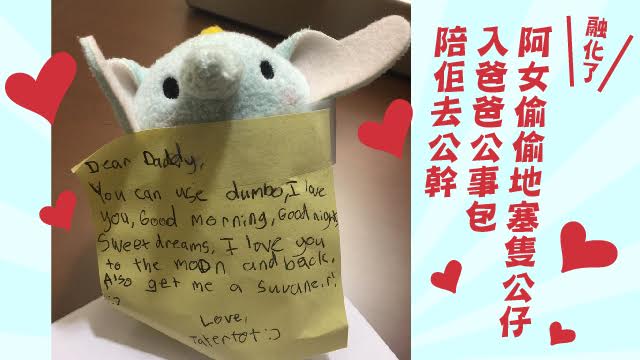 Dear Daddy,
You can use dumbo, I love
you, Good morning, Good night,
Sweet dreams, I love you
to the moon and back.
Also get me a suvane.r!
:)
Love,
Tatertot :)
融化了
阿女偷偷地塞隻公仔
入爸爸公事包
陪佢去公幹